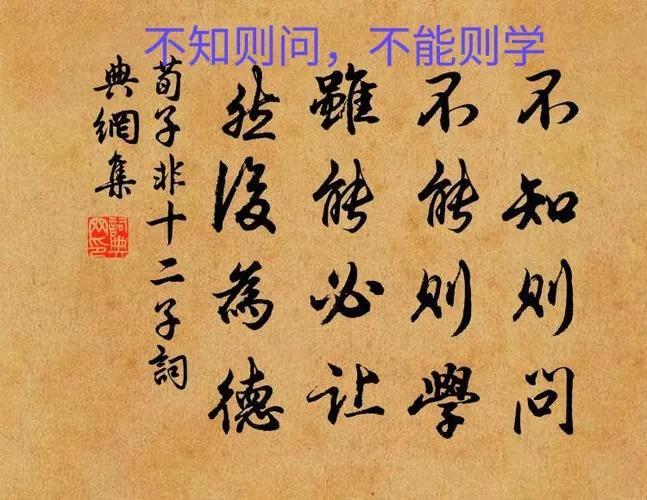 不知则问，不能则学
不知则问
不能则學
雖能必让
然後為德
荀子非十二子詞
典網集
詞典